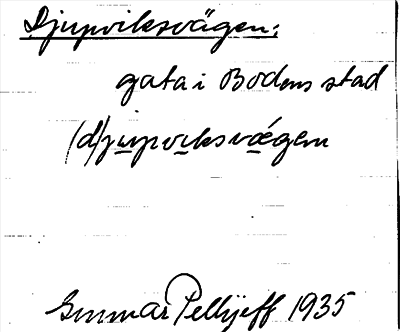 Djupviksvägen:
gata i Bodens stad
(d)jupviksvǽgen
Gunnar Pellijeff 1935